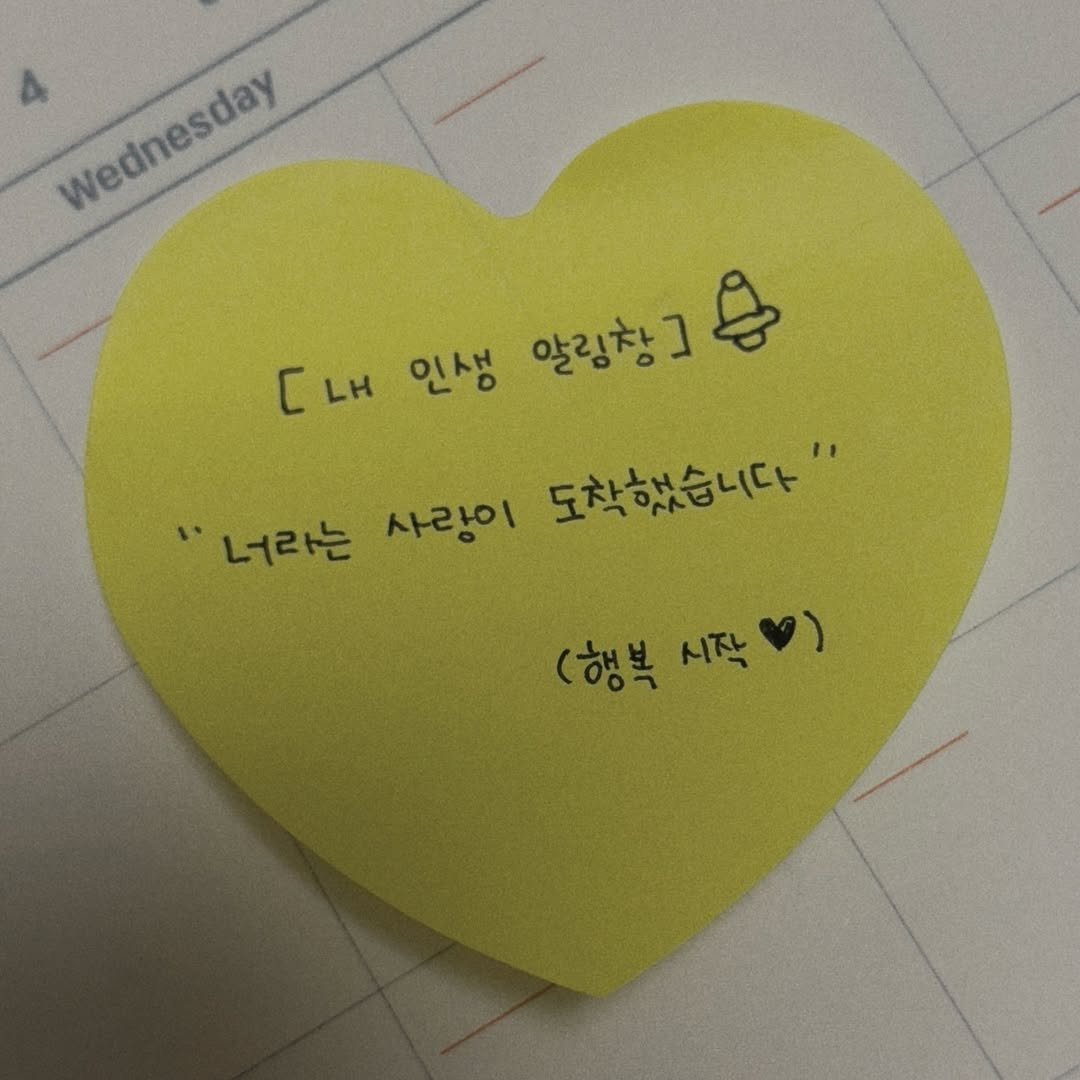 4
Wednesday
[내 인생 알림창]
"너라는 사랑이 도착했습니다"
(행복 시작 ♥)